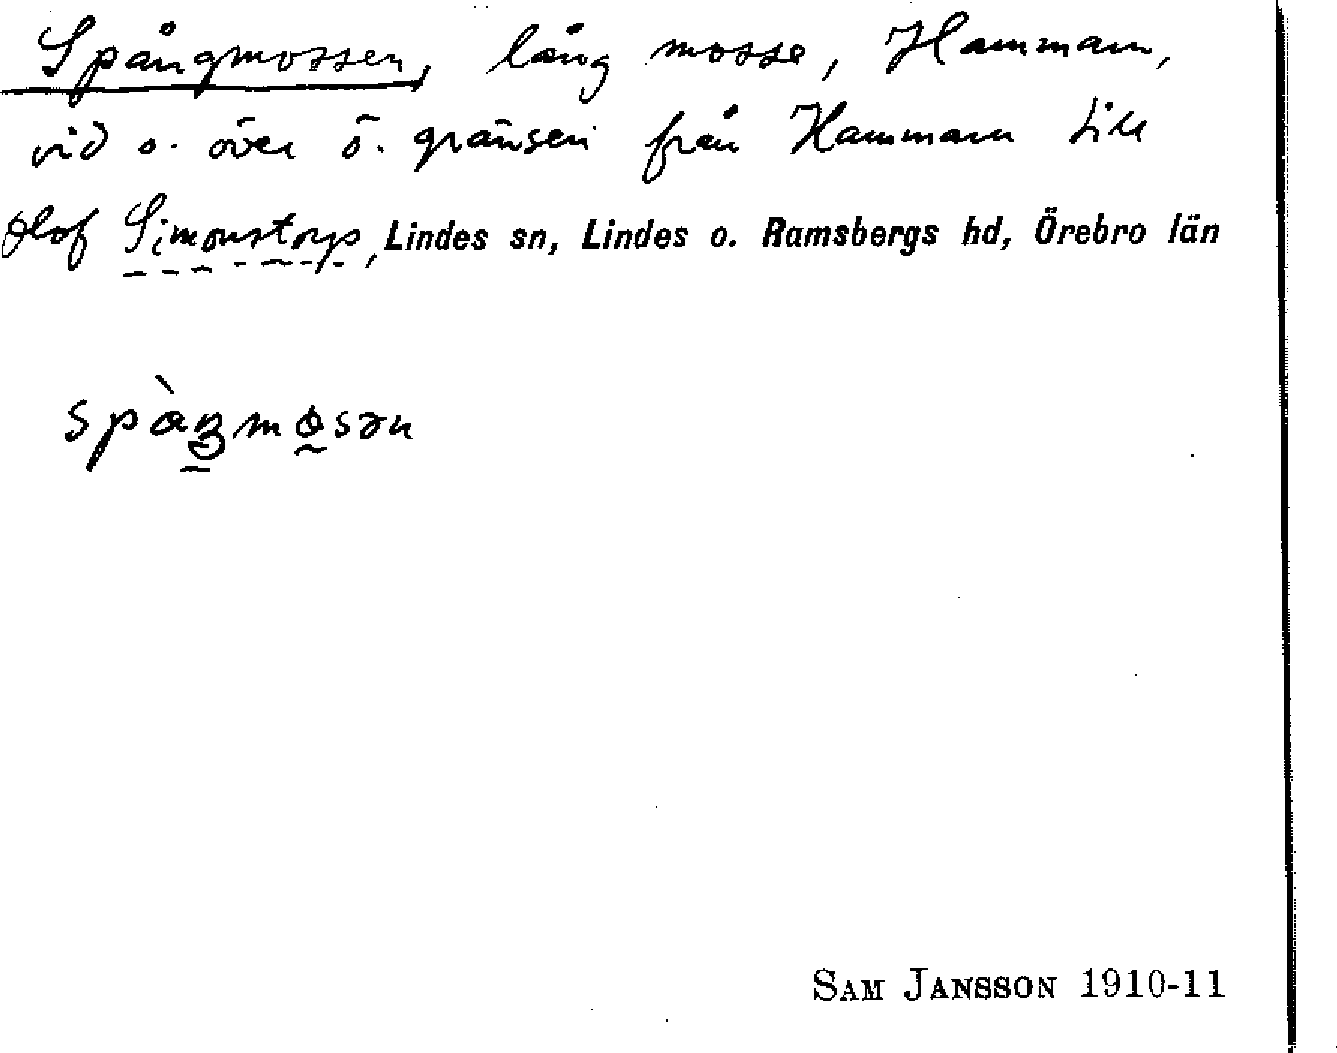 Spångmossen, lång mosse, Hammarn,
vid o. över ö. gränsen från Hammarn till
Olof Simonstorp, Lindes sn, Lindes o. Ramsbergs hd, Örebro län
SAM JANSSON 1910-11